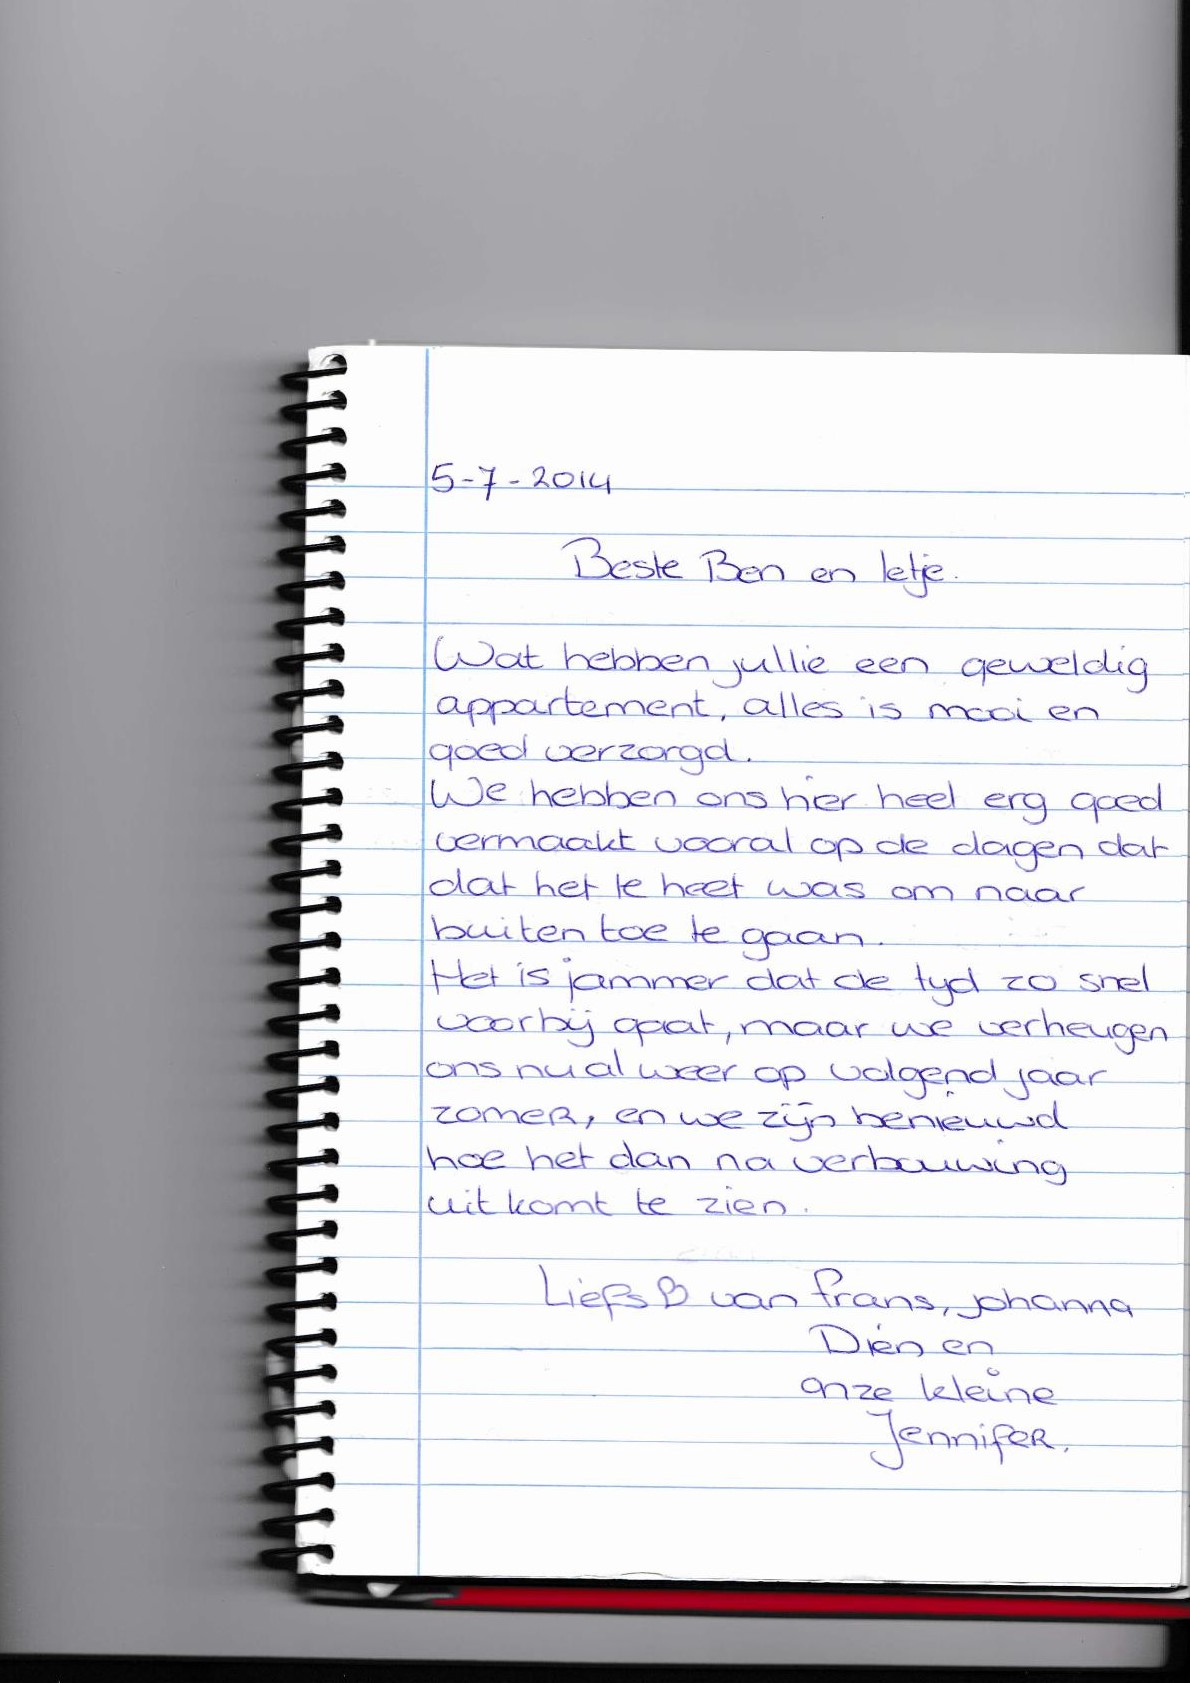 5-7-2014
Beste Ben en Ietje.
Wat hebben jullie een geweldig
appartement, alles is mooi en
goed verzorgd.
We hebben ons hier heel erg goed
vermaakt vooral op de dagen dat
dat het te heet was om naar
buiten toe te gaan.
Het is jammer dat de tyd zo snel
voorbij gaat, maar we verheugen
ons nu al weer op volgend jaar
zomer, en we zijn benieuwd
hoe het dan na verbouwing
uit komt te zien.
Liefs van Frans, Johanna
Dien en
onze kleine
Jennifer.